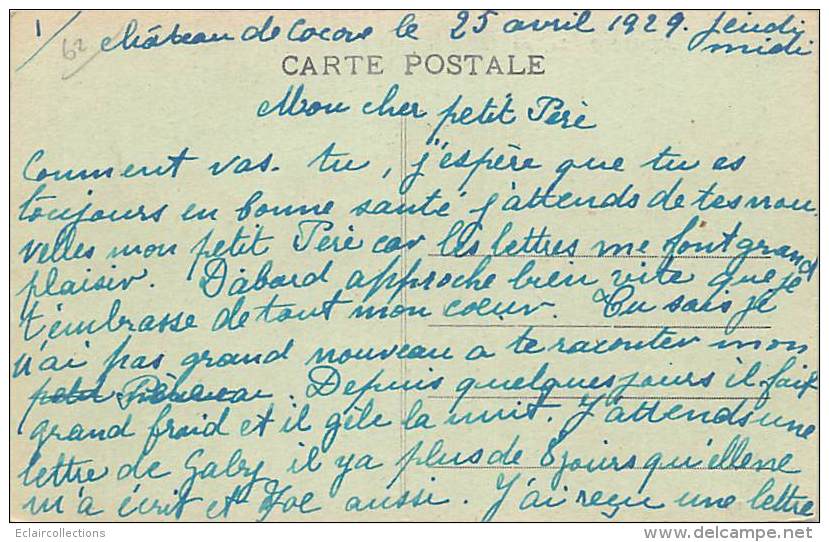 1/ 62 château de Cocove le 25 avril 1929. jeudi
midi
CARTE POSTALE
Mon cher petit Père
Comment vas-tu, j'espère que tu es
toujours en bonne santé j'attends de tes nou
velles mon petit Père car les lettres me font grand
plaisir. D'abord approche bien vite que je
t'embrasse de tout mon coeur. Tu sais je
n'ai pas grand nouveau a te raconter mon
petit Père. Depuis quelques jours il fait
grand froid et il gèle la nuit. J'attends une
lettre de Gaby il y a plus de 8 jours qu'elle ne
m'a écrit et Zoe aussi. J'ai reçu une lettre
Eclaircollections
delcampe.net